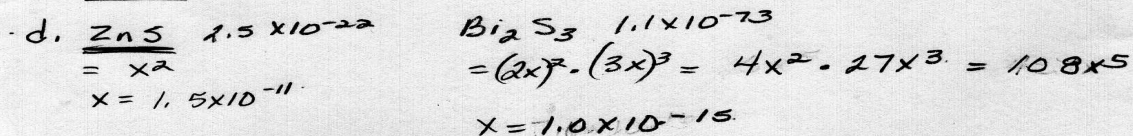 d. ZnS 2.5 x10^-22
= x2
x = 1.5x10^-11
Bi2 S3 1.1x10^-73
= (2x)^2 • (3x)^3 = 4x^2 • 27x^3 = 108x^5
x = 1.0 x 10^-15